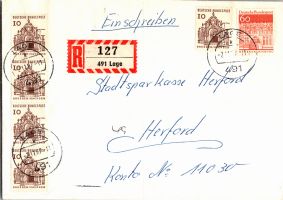 Einschreiben
10
DEUTSCHE BUNDESPOST
10
DEUTSCHE BUNDESPOST
60
Deutsche Bundespost
R
127
491 Lage
491
Stadtsparkasse Herford
10
DEUTSCHE BUNDESPOST
10
DEUTSCHE BUNDESPOST
10
DEUTSCHE BUNDESPOST
491
Herford
Konto No 11030